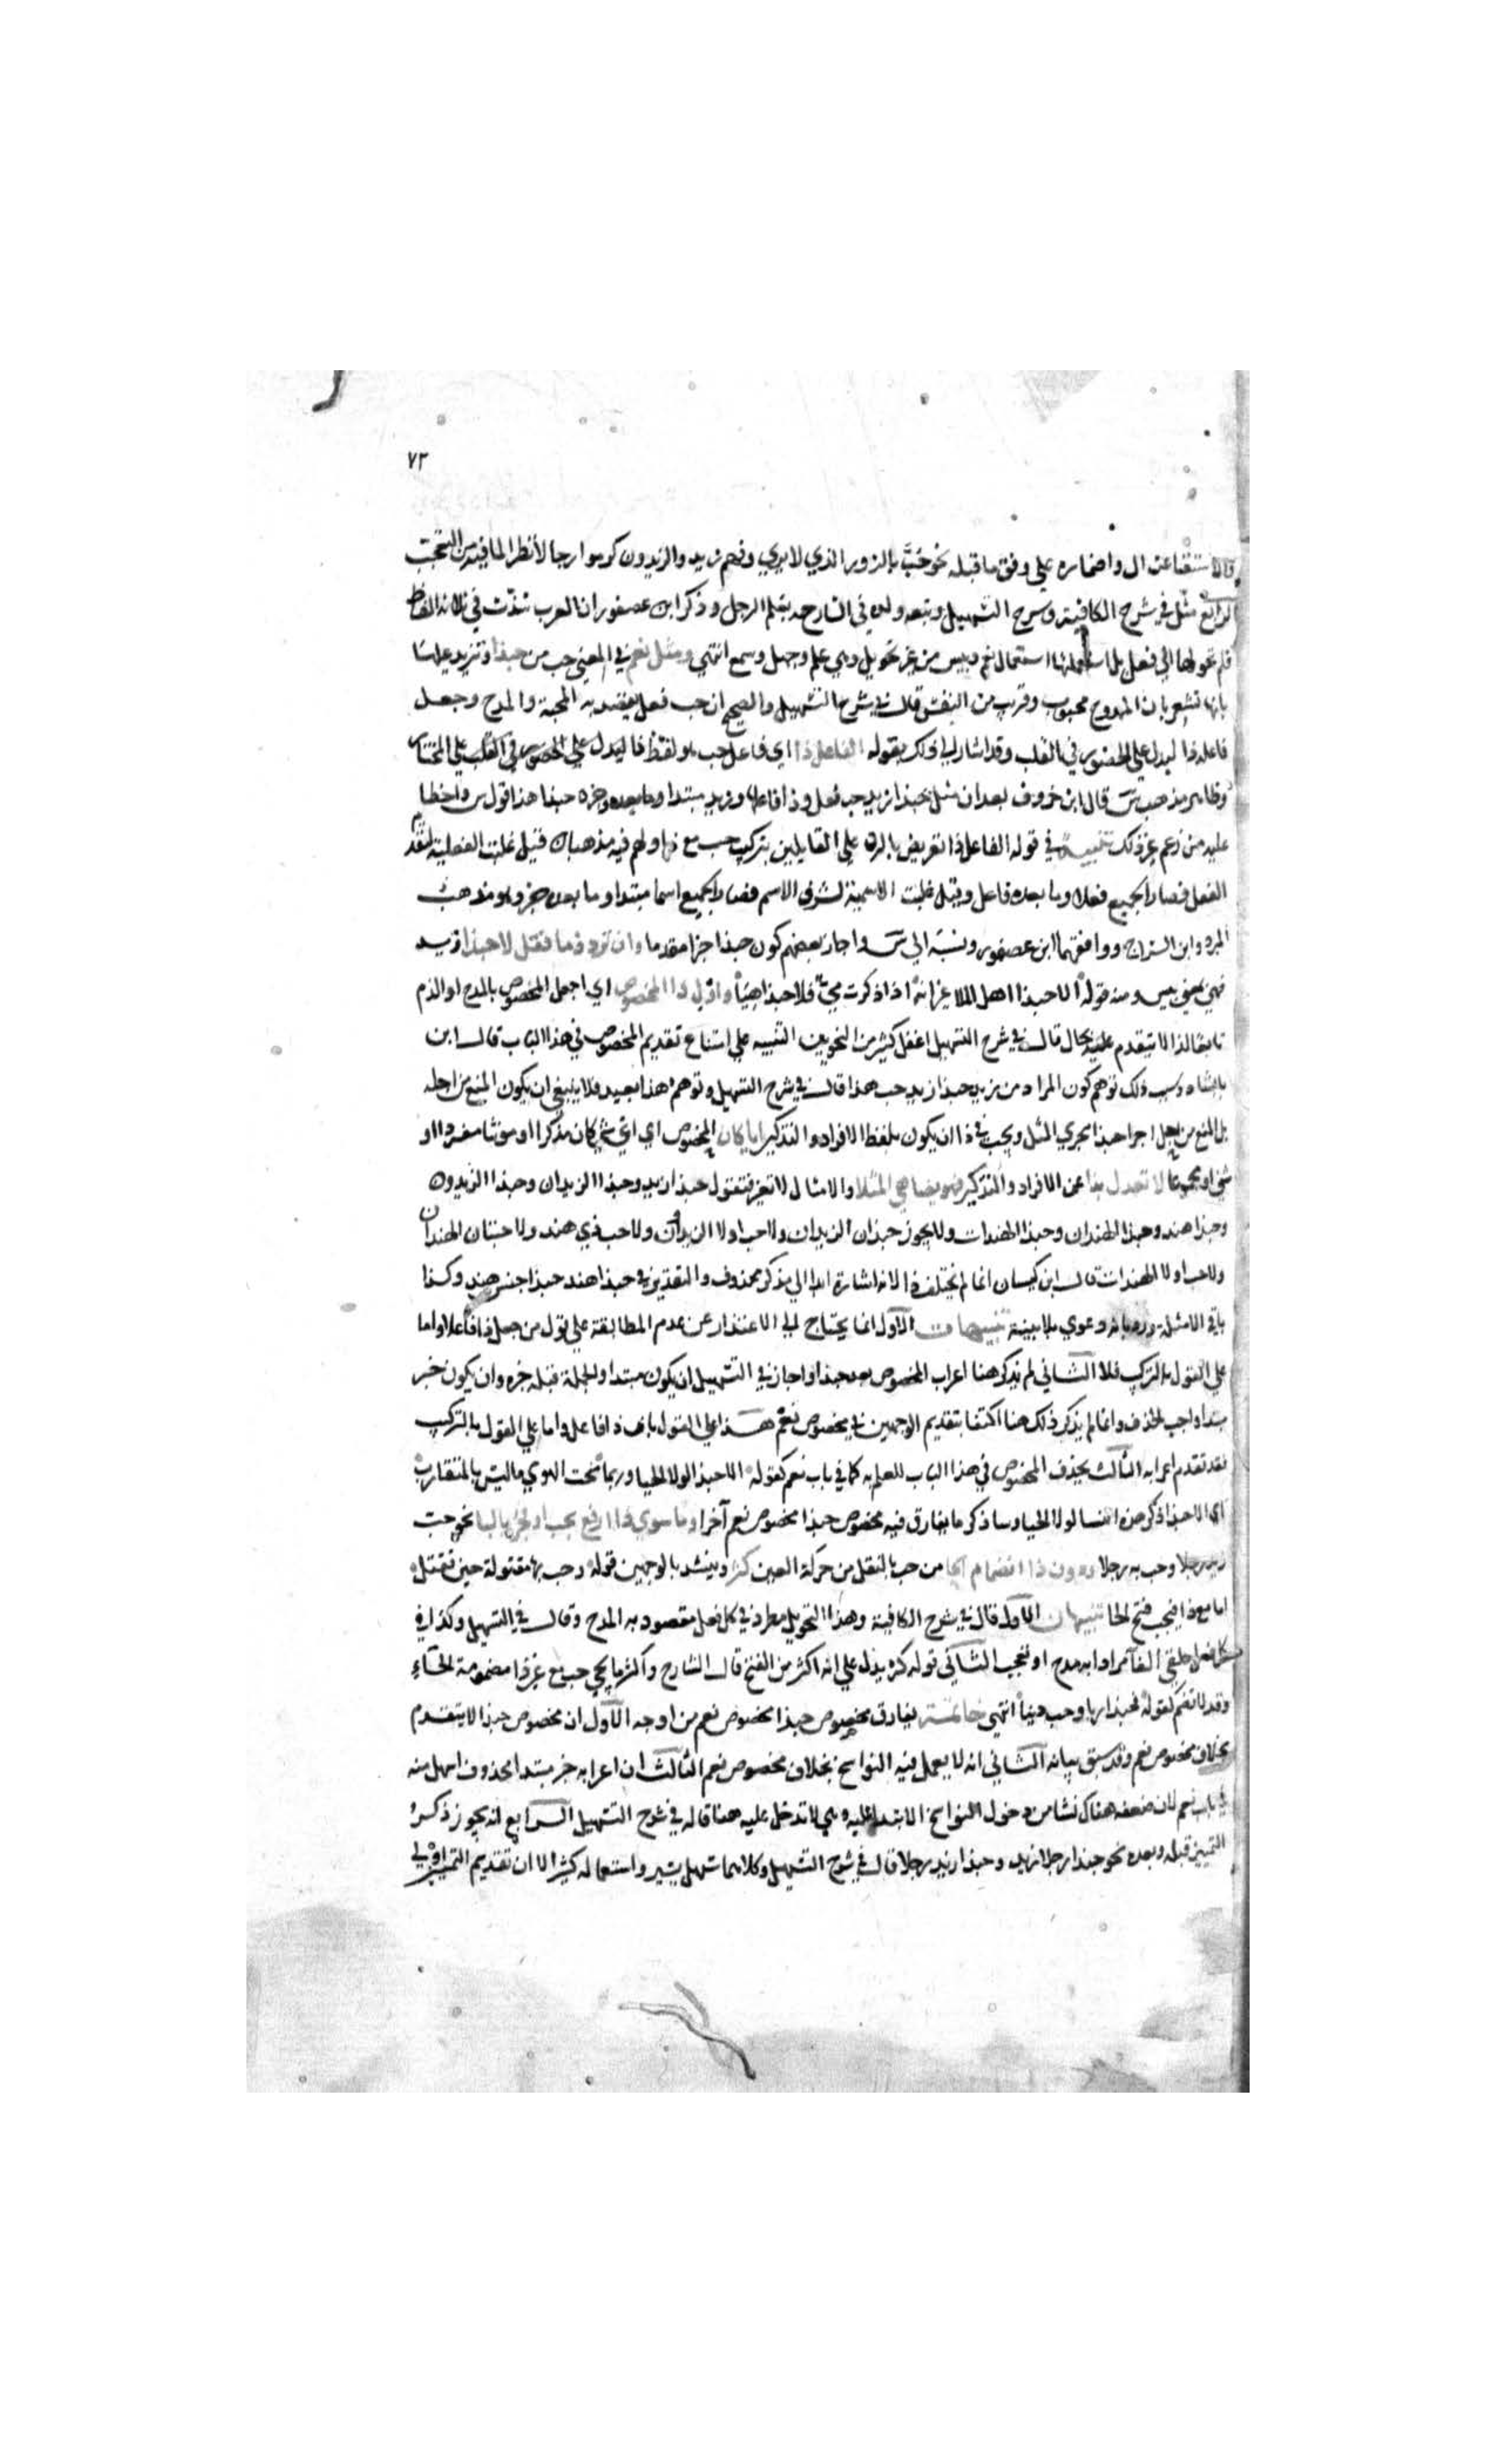 ٧٣
والاستغناء عن ال واضماره علي وفق ما قبله نحو حُبَّ بالزور الذي لا يري وفهم زيد والزيدون كرموا رجالا نظرا لما فيه من التعجب
الرابع مثّل في شرح الكافية وشرح التسهيل وتبعه ولده في الشارح بعلم الرجل وذكر ابن عصفور ان العرب شذّت في ثلاثة الفاظ
فلم تحولها الي فعل بل استعملتها استعمال نعم وبيس من غير تحويل وهي علم وجهل وسمع انتهي ومثل نعم في المعني حب من حبذا وتزيد عليها
بانها تشعر بان الممدوح محبوب وقريب من النفس قال في شرح التسهيل والصحيح ان حب فعل يقصد به المحبة والمدح وجعل
فاعله ذا ليدل علي الحضور في القلب وقد اشار الي ذلك بقوله الفاعل ذا اي فاعل حب هو لفظ ذا ليدل علي الحضور في القلب علي المختار
وظاهر مذهب س قال ابن خروف بعد ان مثل بحبذا زيد حب فعل وذا فاعلها وزيد مبتدا وخبره حبذا هذا قول س واخطا
عليه من زعم غير ذلك تنبيه في قوله الفاعل ذا تعريض بالرد علي القايلين بتركيب حب مع ذا ولهم فيه مذهبان قيل غلبت الفعلية لتقدم
الفعل فصار الجميع فعلا وما بعده فاعل وقيل غلبت الاسمية لشرف الاسم فصار الجميع اسما مبتدا وما بعده خبر وهو مذهب
المبرد وابن السراج ووافقهما ابن عصفور ونسبه الي س واجاز بعضهم كون حبذا خبرا مقدما وان ترد ذما فقل لا حبذا زيد
فهي بمعني بيس ومنه قوله الا حبذا اهل الملا غير انه اذا ذكرت ميّ فلا حبذا هيا واوّل ذا المخصوص اي اجعل المخصوص بالمدح او الذم
تابعا لذا لا يتقدم عليه بحال قال في شرح التسهيل اغفل كثير من النحويين التنبيه علي امتناع تقديم المخصوص في هذا الباب قال ابن
بابشاذ وسبب ذلك توهم كون المراد من زيد حبذا زيد حب هذا قال في شرح التسهيل وتوهم هذا بعيد فلا ينبغي ان يكون المنع من اجله
بل المنع من اجل اجرا حبذا مجري المثل ويجب في ذا ان يكون بلفظ الافراد والتذكير ايا كان المخصوص اي اي شي كان مذكرا او مونثا مفردا او
مثني او مجموعا لا تعدل بذا عن الافراد والتذكير فهو يضاهي المثلا والامثال لا تغير فتقول حبذا زيد وحبذا الزيدان وحبذا الزيدون
وحبذا هند وحبذا الهندان وحبذا الهندات ولا يجوز حبذان الزيدان ولا حب اولا الزيدون ولا حب ذي هند ولا حبتان الهندان
ولا حب اولا الهندات قال ابن كيسان انما لم يختلف ذا لانه اشارة ابدا الي مذكر محذوف والتقدير في حبذا هند حبذا حسن هند وكذا
باقي الامثلة ورد بانه دعوي بلا بينة تنبيهات الاول انما يحتاج الي الاعتذار عن عدم المطابقة علي قول من جعل ذا فاعلا واما
علي القول بالتركيب فلا الثاني لم يذكر هنا اعراب المخصوص بعد حبذا واجاز في التسهيل ان يكون مبتدا والجملة قبله خبره وان يكون خبر
مبتدا واجب الحذف وانما لم يذكر ذلك هنا اكتفا بتقديم الوجهين في مخصوص نعم هذا علي القول بان ذا فاعل واما علي القول بالتركيب
فقد تقدم اعرابه الثالث يحذف المخصوص في هذا الباب للعلم به كما في باب نعم كقوله الا حبذا لولا الحيا وربما منحت الهوي ما ليس بالمتقارب
اي الا حبذا ذكر هذه النسا لولا الحيا وساذكر ما يفارق فيه مخصوص حبذا مخصوص نعم آخرا وما سوي ذا ارفع بحب او فجر بالبا نحو حب
زيد رجلا وحب به رجلا ودون ذا انضمام الحا من حب بالنقل من حركة العين كثر وينشد بالوجهين قوله وحب بها مقتولة حين تقتل
اما مع ذا فيجب فتح الحا تنبيهان الاول قال في شرح الكافية وهذا التحويل مطرد في كل فعل مقصود به المدح وقال في التسهيل وكذا في
كل فعل حلقي الفا مرادا به مدح او تعجب الثاني قوله كثر يدل علي انه اكثر من الفتح قال الشارح واكثر ما يجي حب مع غير ذا مضمومة الحاء
وقد لا تضم كقوله فحبذا ربا وحب دينا انتهي خاتمة يفارق مخصوص حبذا مخصوص نعم من اوجه الاول ان مخصوص حبذا لا يتقدم
بخلاف مخصوص نعم وقد سبق بيانه الثاني انه لا يعمل فيه النواسخ بخلاف مخصوص نعم الثالث ان اعرابه خبر مبتدا محذوف اسهل منه
في باب نعم لان ضعفه هناك نشا من دخول النواسخ الابتدا عليه وهي لا تدخل عليه هنا قاله في شرح التسهيل الرابع انه يجوز ذكر
التمييز قبله وبعده نحو حبذا رجلا زيد وحبذا زيد رجلا قال في شرح التسهيل وكلاهما سهل يسير واستعماله كثير الا ان تقديم التمييز اولي